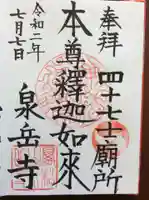 奉拝
四十七士廟所
本尊釋迦如来
令和二年
七月七日
泉岳寺